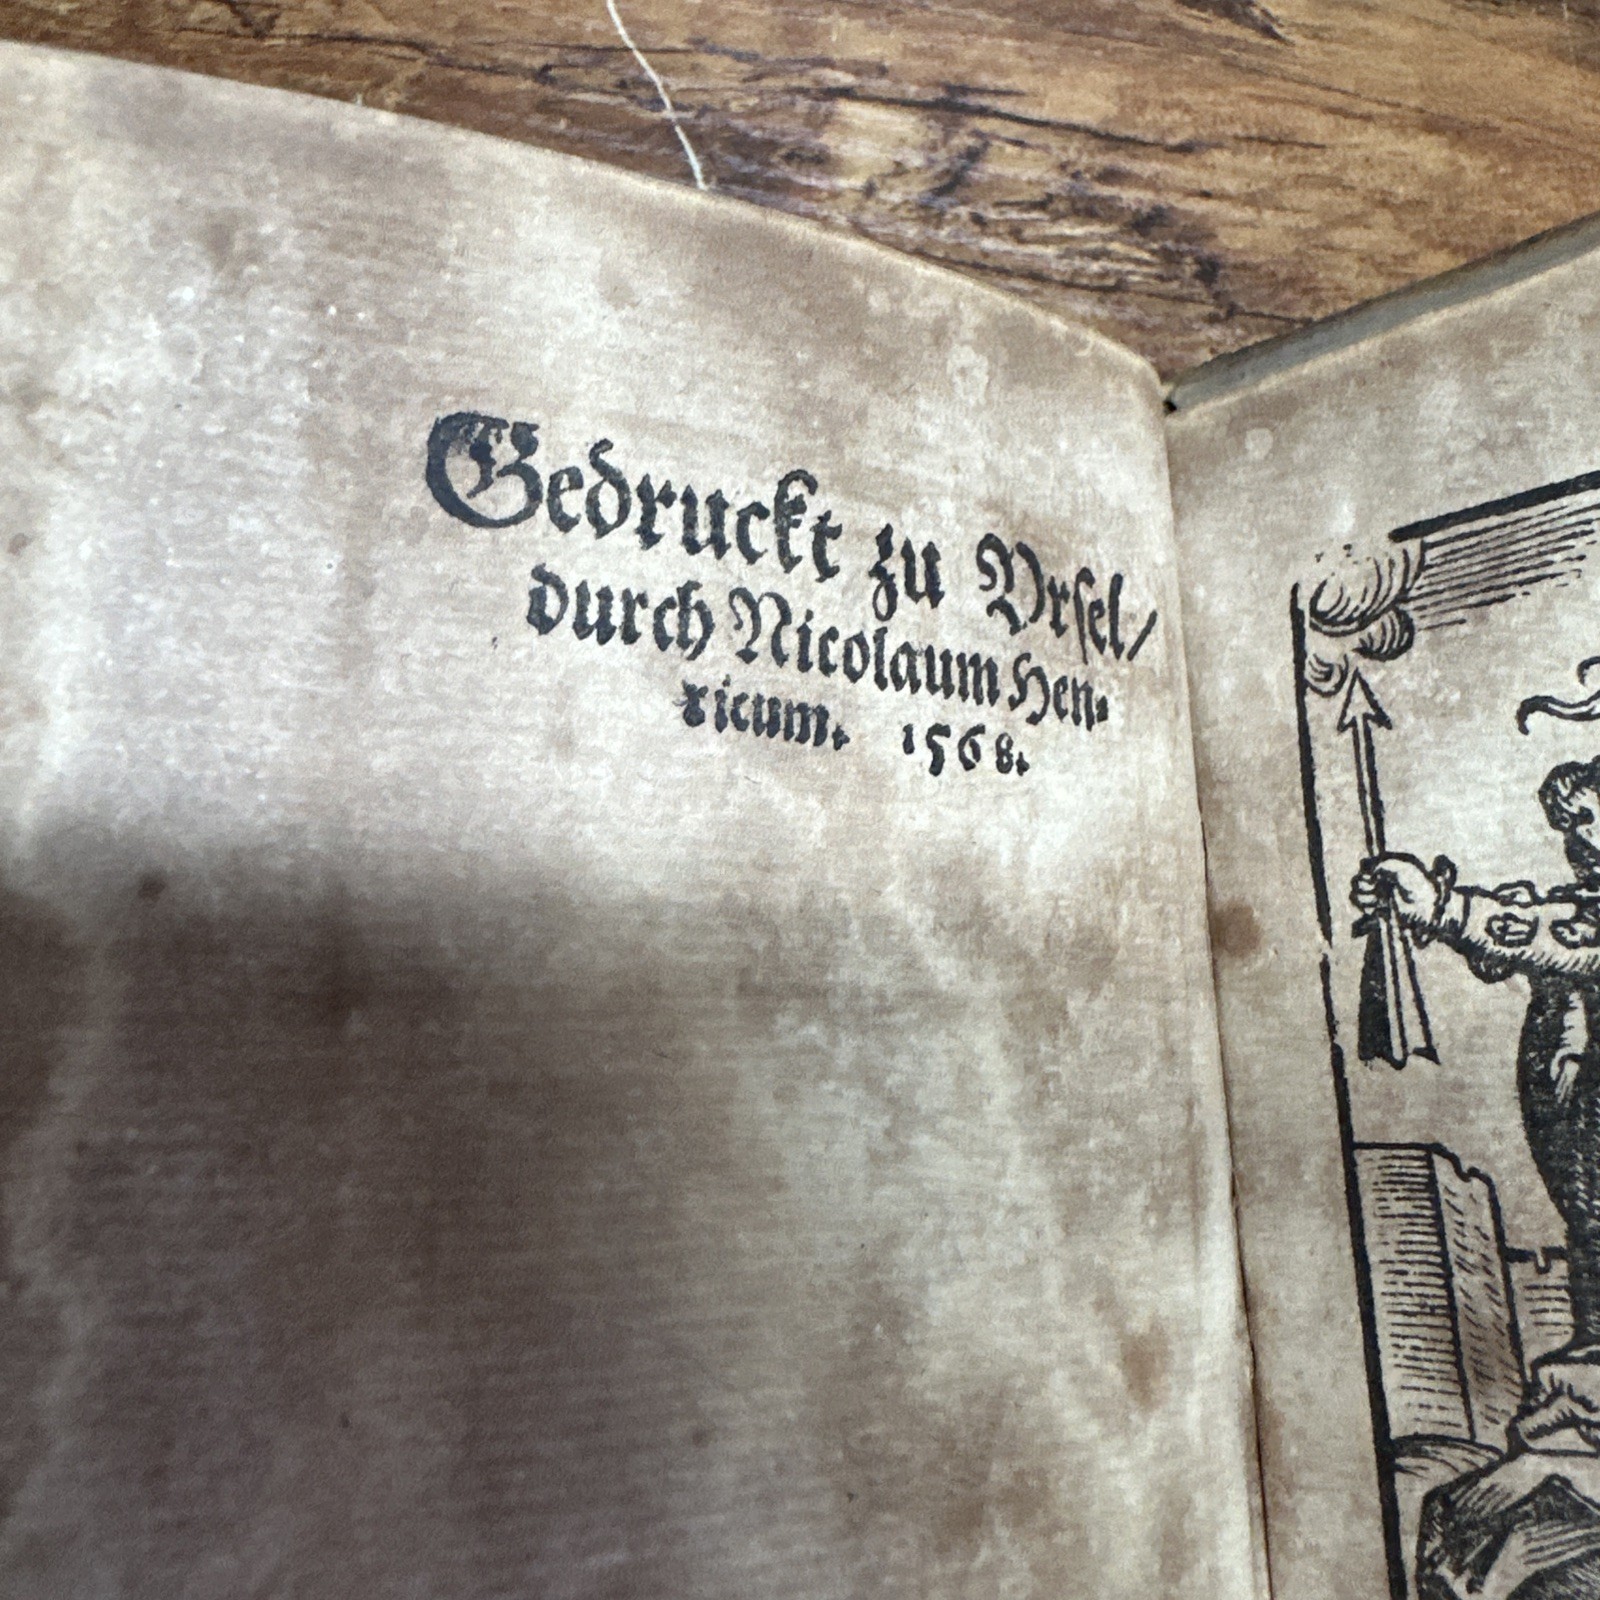 Gedruckt zu Vrſel/
durch Nicolaum Hen-
ricum. 1568.